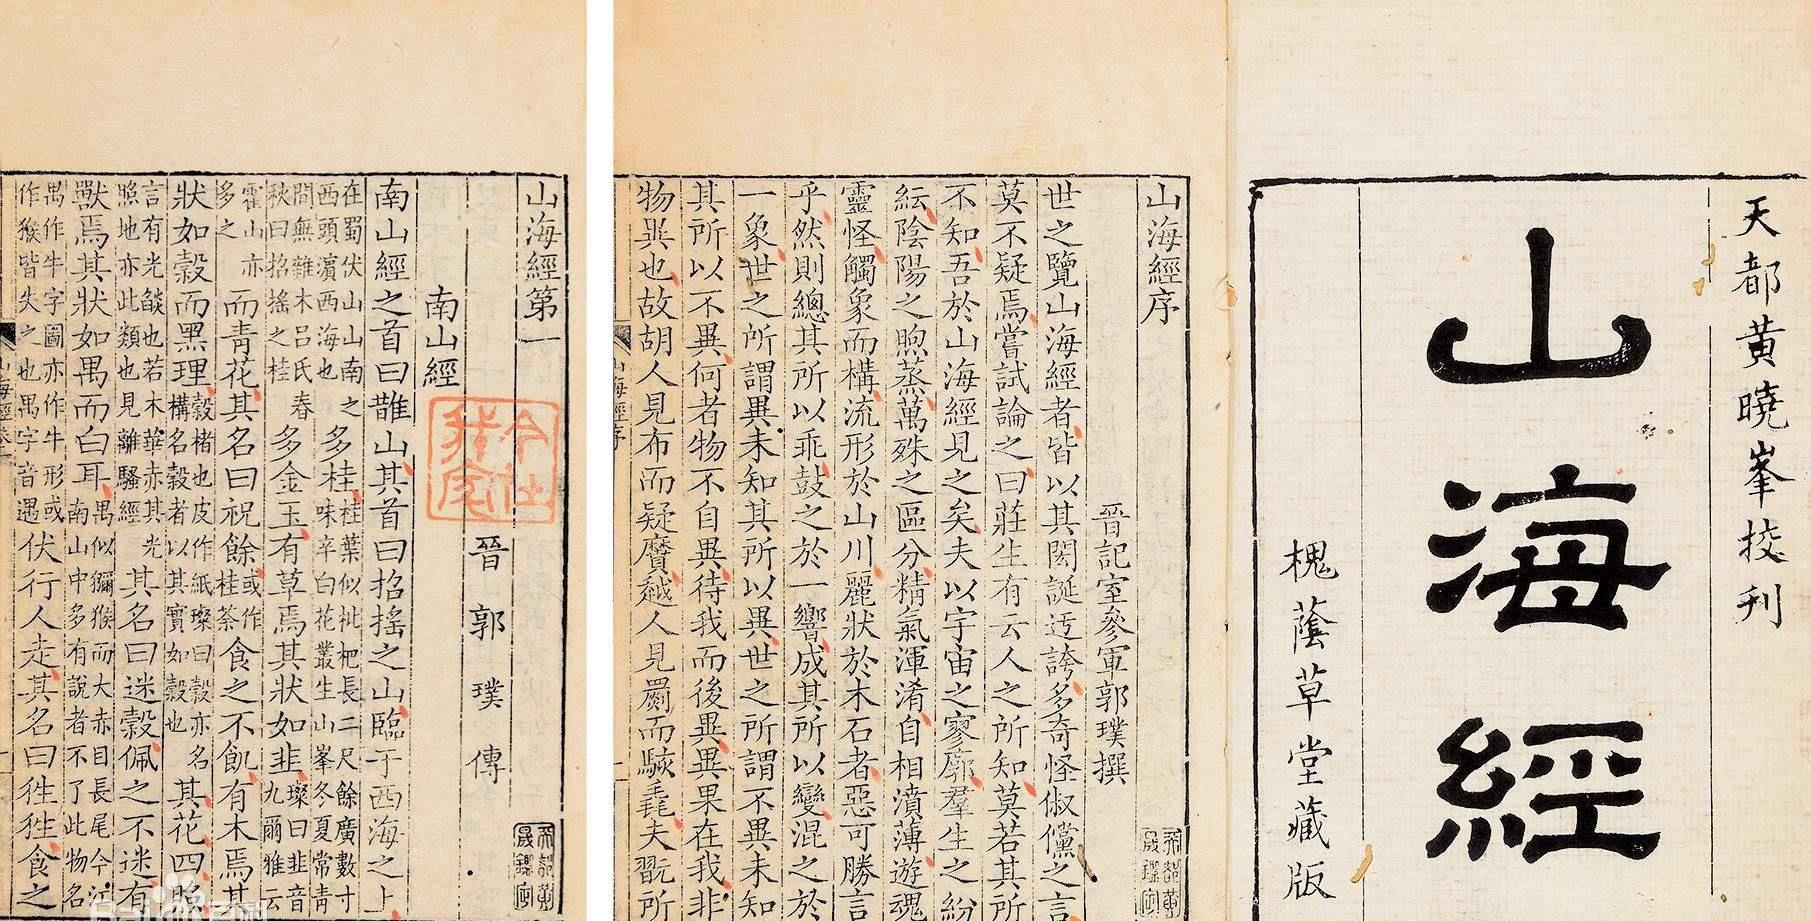 天都黃曉峯挍刊
山海經
槐蔭草堂藏版
山海經序
晉記室參軍郭璞撰
世之覽山海經者皆以其閎誕迃誇多奇怪俶儻之言
莫不疑焉嘗試論之曰莊生有云人之所知莫若其所
不知吾於山海經見之矣夫以宇宙之寥廓羣生之紛
紜陰陽之煦蒸萬殊之區分精氣渾淆自相濆薄遊魂
靈怪觸象而構流形於山川麗狀於木石者惡可勝言
乎然則總其所以乖鼓之於一響成其所以變混之於
一象世之所謂異未知其所以異世之所謂不異未知
其所以不異何者物不自異待我而後異異果在我非
物異也故胡人見布而疑黂越人見罽而駭毳夫翫所
山海經序
山海經第一
南山經
晉 郭 璞 傳
南山經之首曰䧿山其首曰招搖之山臨于西海之上
在蜀伏山山南之西頭濱西海也多桂桂葉似枇杷長二尺餘廣數寸味辛白花叢生山峯冬夏常青
間無雜木呂氏春秋曰招搖之桂多金玉有草焉其狀如韭璨曰韭音九爾雅云
霍山亦多之而青花其名曰祝餘或作桂荼食之不飢有木焉其
狀如穀而黑理穀楮也皮作紙璨曰穀亦名構名穀者以其實如穀也其花四照
言有光燄也若木華赤其光照地亦此類也見離騷經其名曰迷穀佩之不迷有
獸焉其狀如禺而白耳禺似獼猴而大赤目長尾今江南山中多有說者不了此物名
禺作牛字圖亦作牛形或作猴皆失之也禺字音遇伏行人走其名曰狌狌食之